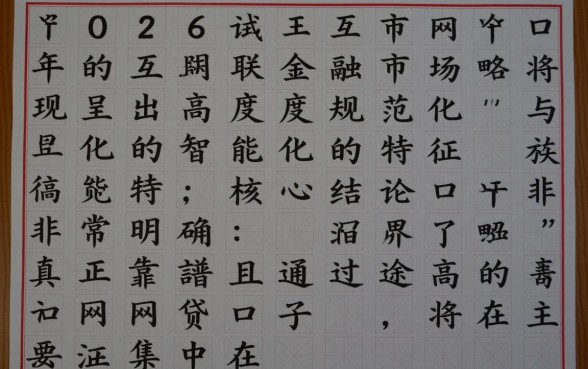 0 2 6 试 王 互 市 网 口
年 的 互 联 金 融 市 场 略 将
现 呈 出 高 度 度 规 范 化 " 与
化 的 智 能 化 的 特 征 族
能 特 ; 核 心 结 论 口 非
非 常 明 确 : 界 了 "
真 正 靠 譜 且 通 过 途 高 的
网 网 贷 口 子 , 将 在 主
要 集 中 在